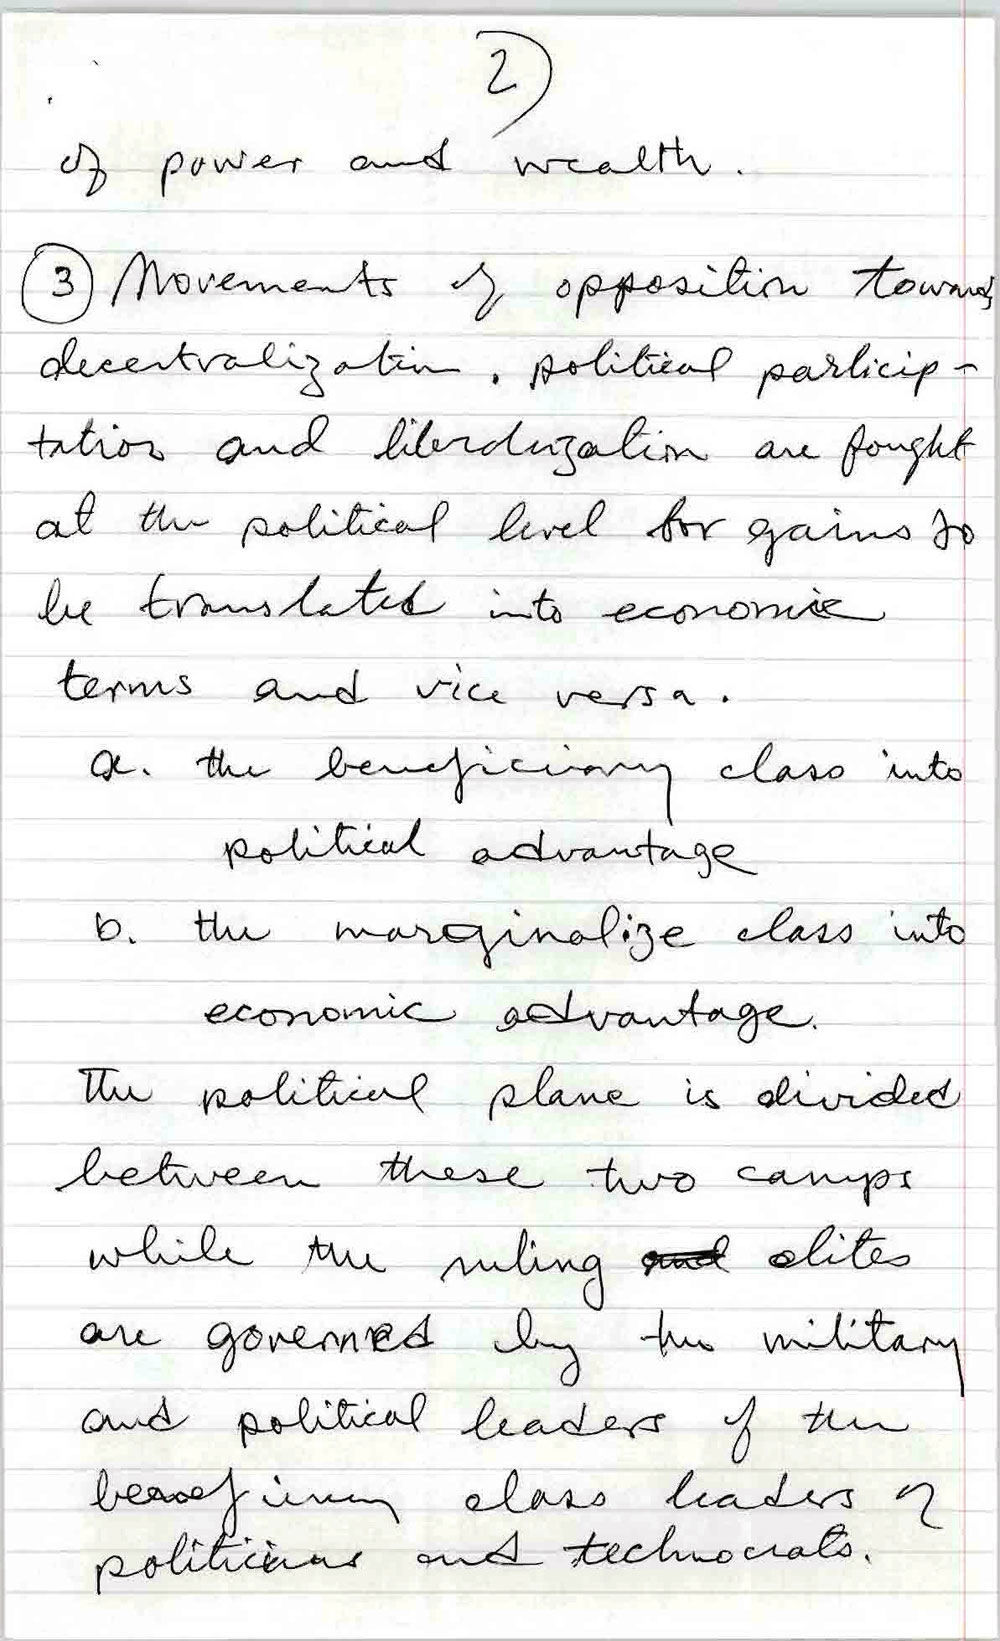 2)
of power and wealth.
③ Movements of opposition towards
decentralization, political particip-
tation and liberalization are fought
at the political level for gains to
be translated into economic
terms and vice versa.
a. the beneficiary class into
political advantage
b. the marginalize class into
economic advantage.
The political plane is divided
between these two camps
while the ruling elites
are governed by the military
and political leaders of the
beneficiary class leaders of
politicians and technocrats.